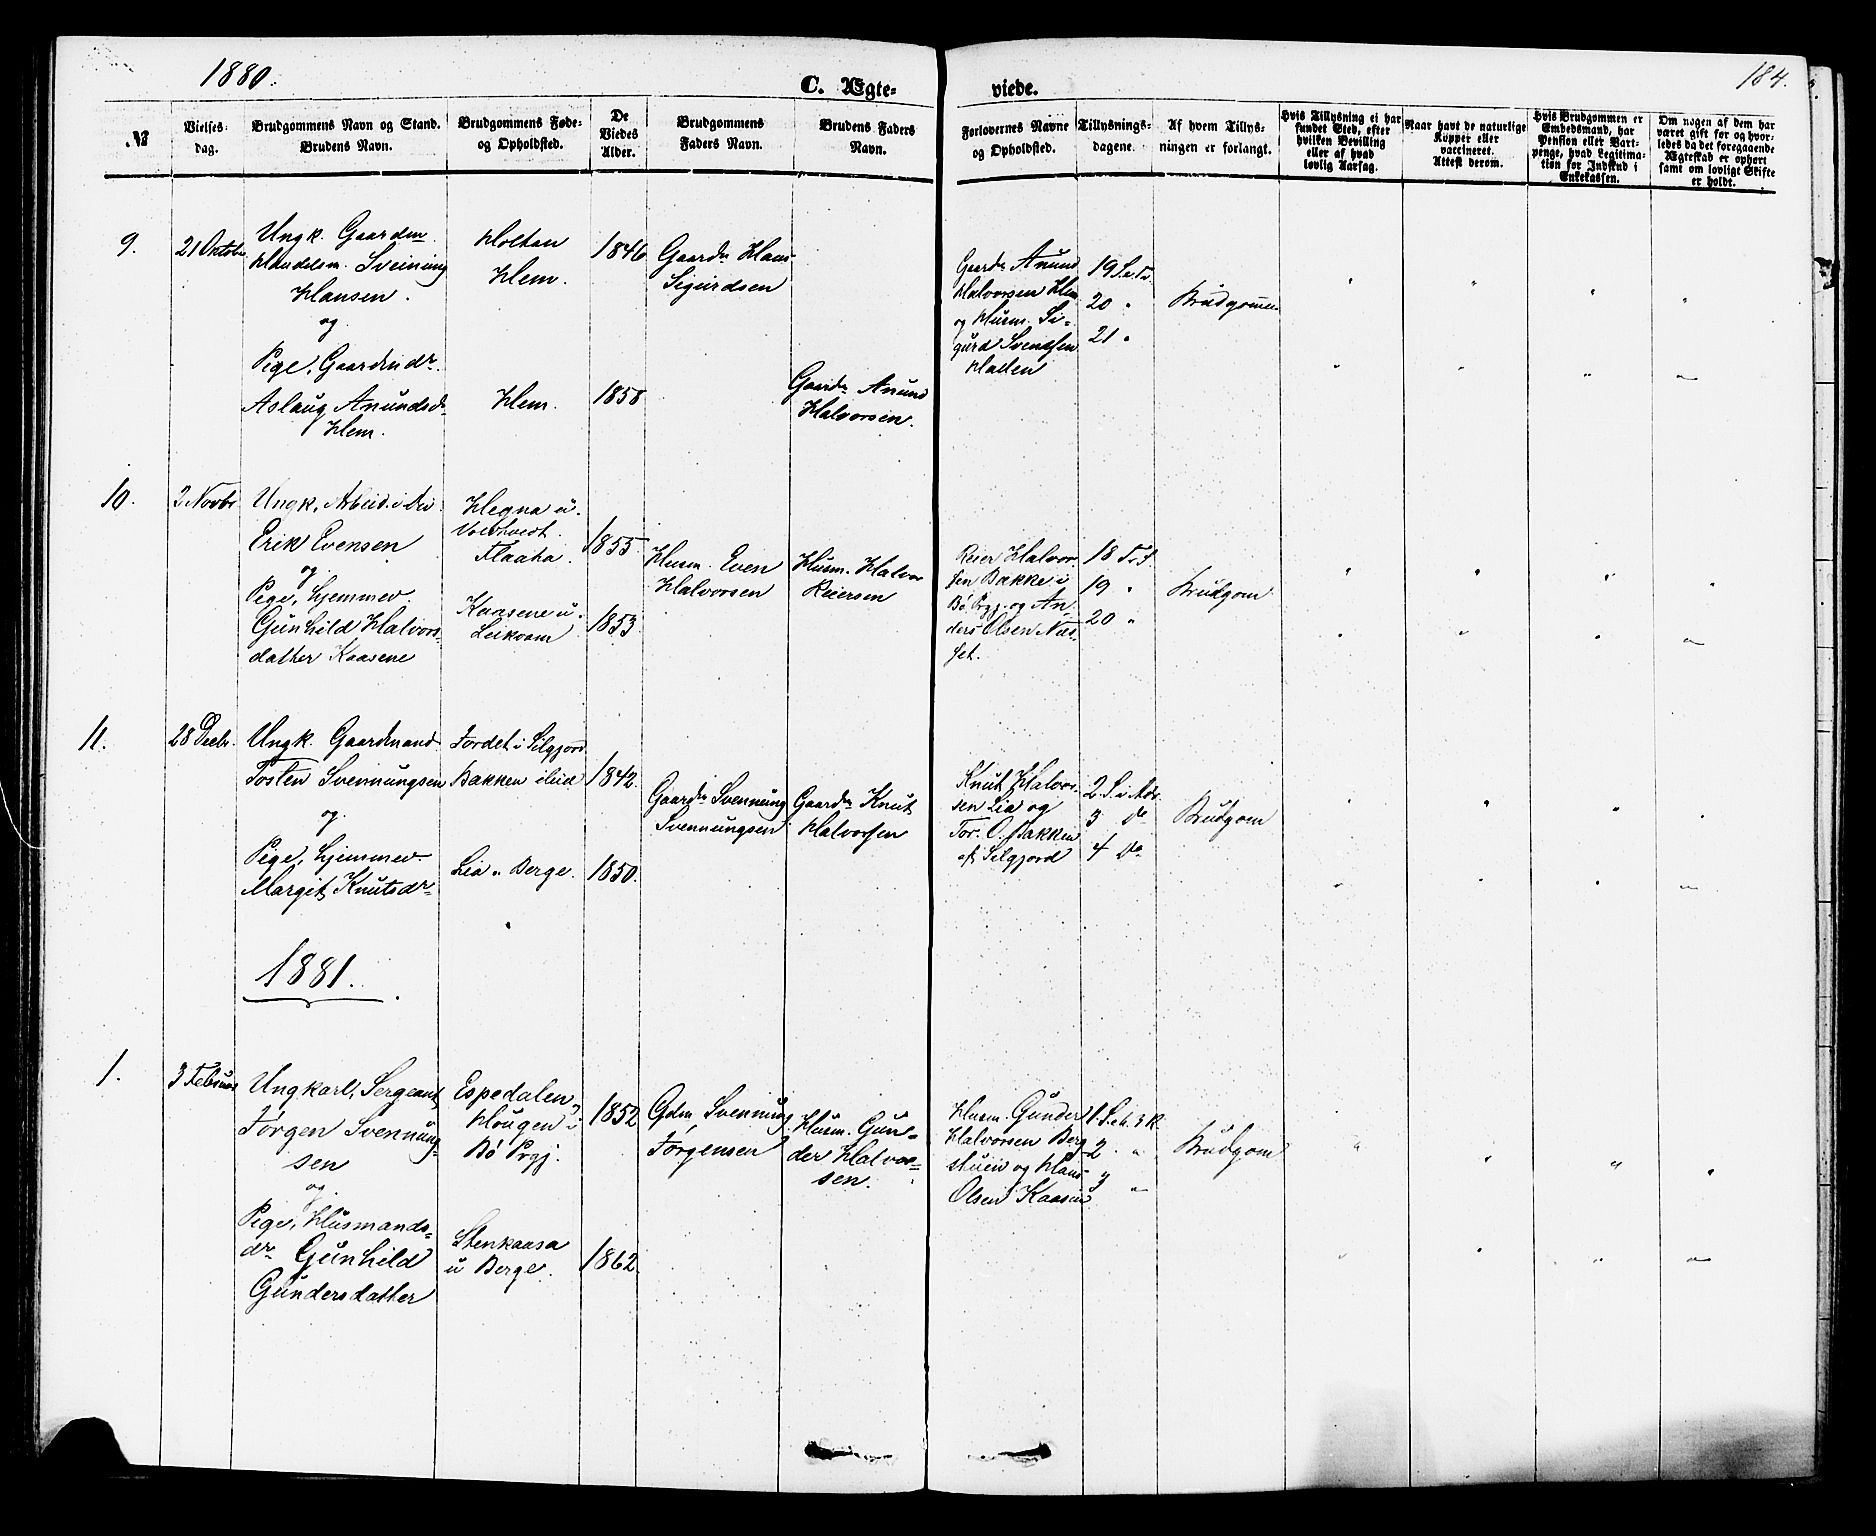 1880.
C. Ægte-
viede.
184.
№
Vielses-
dag.
Brudgommens Navn og Stand.
Brudens Navn.
Brudgommens Føde-
og Opholdsted.
De
Viedes
Alder.
Brudgommens
Faders Navn.
Brudens Faders
Navn.
Forlovernes Navne
og Opholdsted.
Tillysnings-
dagene.
Af hvem Tillys-
ningen er forlangt.
Hvis Tillysning ei har
fundet Sted, efter
hvilken Bevilling
eller af hvad
lovlig Aarsag.
Naar havt de naturlige
Kopper eller
vaccineret.
Attest derom.
Hvis Brudgommen er
Embedsmand, har
Pension eller Vart-
penge, hvad Legitima-
tion for Indskud i
Enkekassen.
Om nogen af dem har
været gift før og hvor-
ledes da det foregaaende
Ægteskab er ophørt
samt om lovligt Skifte
er holdt.
9.
21 Oktobr
Ungk. Gaardm
Handelsm. Sveinung
Hansen.
og
Pige, Gaardmdr.
Aslaug Anundsdr
Hem.
Holtan
Hem.
Hem.
1846
1858
Gaardm Hans
Sigurdsen
Gaardm Anund
Halvorsen.
Gaardm Anund
Halvorsen Hem
og Husm. Si-
gurd Svensen
Haden
19 S.e.Tr.
20 "
21 "
Brudgommen
10.
2 Novbr
Ungk. Arbeid.
Erik Evensen
og
Pige, hjemmev.
Gunhild Halvors-
datter Kaasene
Hegna u.
Flaata.
Kaasene u.
Leikvam
1855.
1853.
Husm. Even
Halvorsen
Husm. Halvor
Reiersen
Reier Halvor-
sen Bakke i
Bø Prgj. og An-
ders Olsen Næs-
set.
18 Tr.S.
19 "
20 "
Brudgom
11.
28 Decbr.
Ungk. Gaardmand
Tosten Svennungsen
og
Pige, hjemmev
Margit Knutsdr
Fordet i Silgjord
Bakken
Lia u. Berge.
1842.
1850.
Gaardm Svennung
Svennungsen
Gaardm Knut
Halvorsen
Knut Halvor-
sen Lia og
Tor. O. Bakken
af Silgjord
2 S. i Adv.
3 do
4 do
Brudgom
1881.
1.
3 Februar
Ungkarl, Sergeant,
Jørgen Svennung-
sen
og
Pige, Husmands-
dr. Gunhild
Gundersdatter
Espedalen,
Hougen i
Bø Prgj.
Stenkaasa
u Berge.
1852
1862.
Gdm. Svennung
Jørgensen
Husm. Gun-
der Halvor-
sen.
Husm. Gunder
Halvorsen Berg-
stuen og Hans
Olsen Kaasin
1. S.e.h.3K.
2 "
3 "
Brudgom